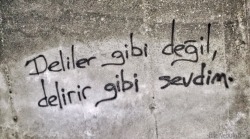 Deliler gibi değil,
delirir gibi sevdim.